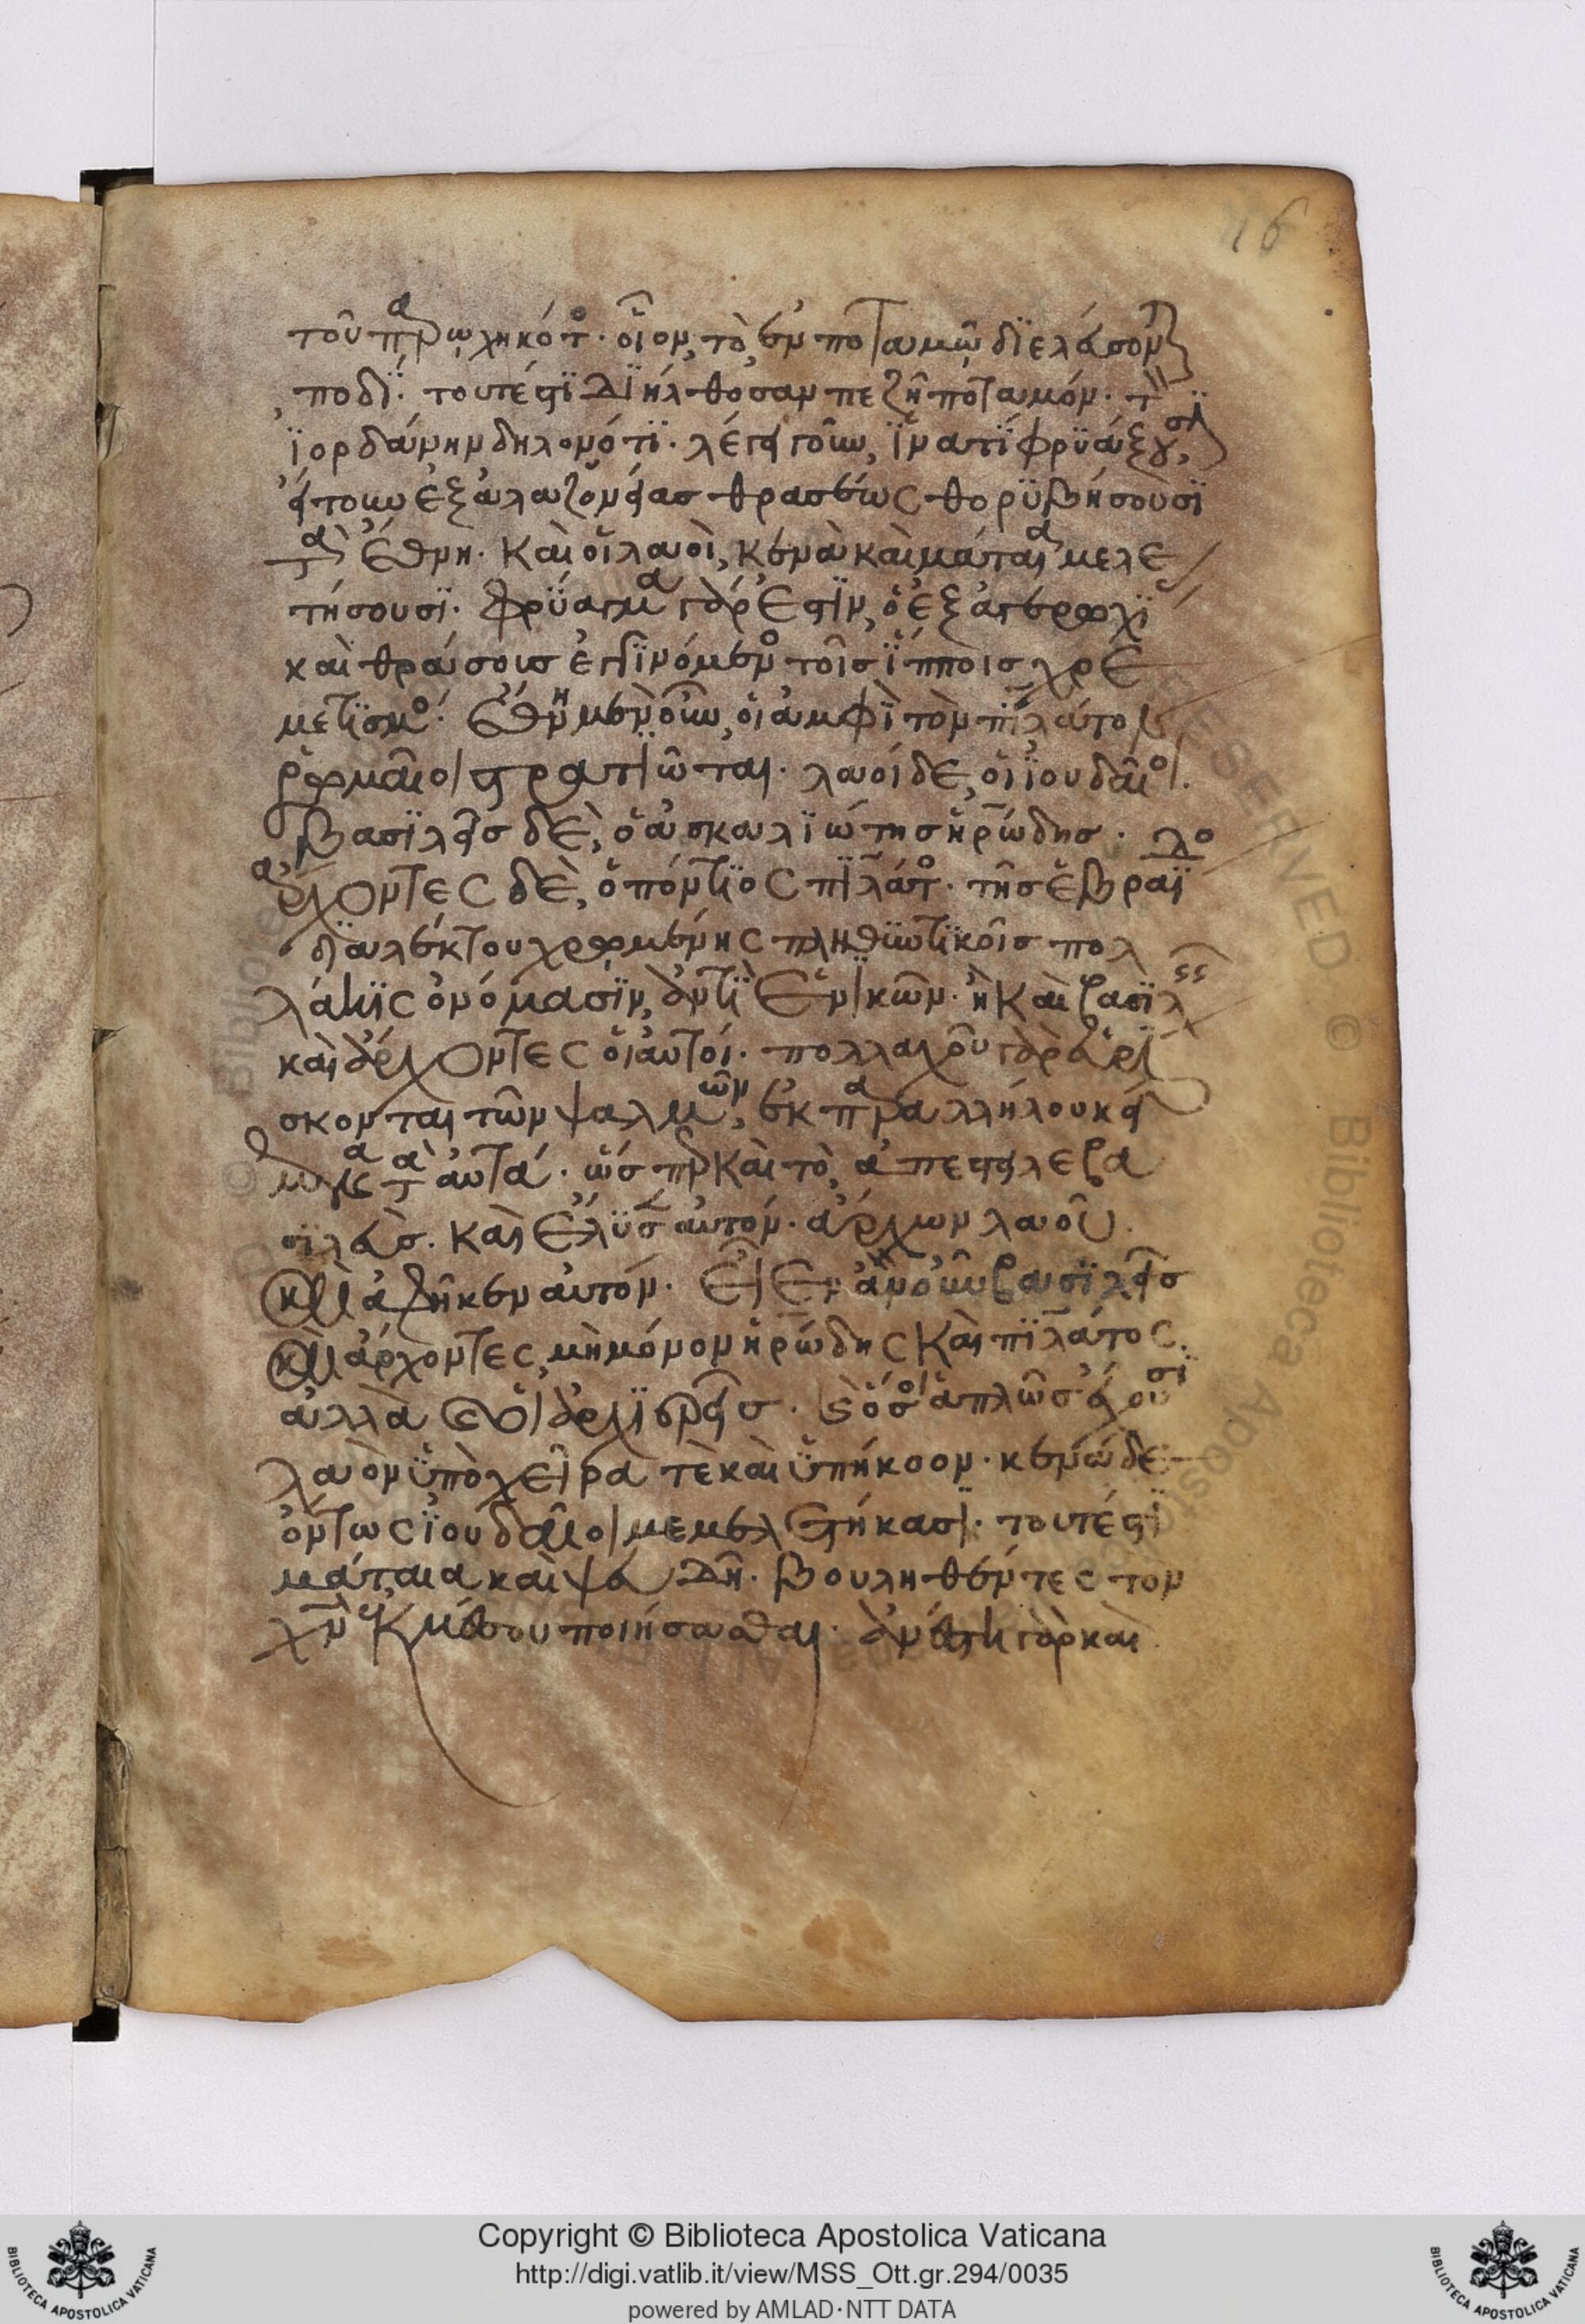 16
τοῦ παρωχηκότος. οἷον, τὸ, ἐν ποταμῷ διελεύσονται
ποδί. τουτέστι διήλθοσαν πεζῇ ποταμόν. τὸν
ἰορδάνην δηλονότι. λέγει γοῦν, ἵνα τί φρυάξουσι,
ήτουν ἐξ ἀλαζονείας θρασέως θορυβήσουσι
τὰ ἔθνη. καὶ οἱ λαοὶ, κενὰ καὶ μάταια μελε
τήσουσι. φρύαγμα γάρ ἐστιν, ὁ ἐξ ἀγερωχί
καὶ θράσους ἐγγινόμενος τοῖς ἵπποις χρε
μετισμός. ἔθνη μὲν οὖν, οἱ ἀμφὶ τὸν πιλάτον
ῥωμαῖοι στρατιῶται. λαοὶ δὲ, οἱ ἰουδαῖοι.
βασιλεῖς δὲ, ὁ ἀσκαλιώτης ἡρώδης.
ἄρχοντες δὲ, ὁ πόντιος πιλάτος. τῆς ἑβραΐ
διαλέκτου χρωμένης πληθυντικοῖς πολ
λάκις ὀνόμασιν, ἀντὶ ἑνικῶν. ἢ καὶ βασιλεῖς
καὶ ἄρχοντες οἱ αὐτοί. πολλαχοῦ γὰρ εὑρί
σκονται τῶν ψαλμῶν, ἐκ παραλλήλου κεί
μενα τὰ αὐτά. ὥσπερ καὶ τὸ, ἀπέστειλε βα
σιλεὺς. καὶ ἔλυσεν αὐτόν. ἄρχων λαοῦ.
καὶ ἀφῆκεν αὐτόν. εἶεν ἂν οὖν βασιλεῖς
καὶ ἄρχοντες, μὴ μόνον ἡρώδης καὶ πιλάτος.
ἀλλὰ καὶ οἱ ἀρχιερεῖς. καὶ ὅσοι ἁπλῶς ἔχουσι
λαὸν ὑπὸ χεῖρα τὲ καὶ ὑπήκοον. κενὰ δὲ
ὄντως ἰουδαῖοι μεμελετήκασι. τουτέστι
μάταια καὶ ψευδῆ. βουληθέντες τὸν
χν ἐκ μέσου ποιήσασθαι. ἀνέστη γὰρ καὶ
Copyright © Biblioteca Apostolica Vaticana
http://digi.vatlib.it/view/MSS_Ott.gr.294/0035
powered by AMLAD·NTT DATA